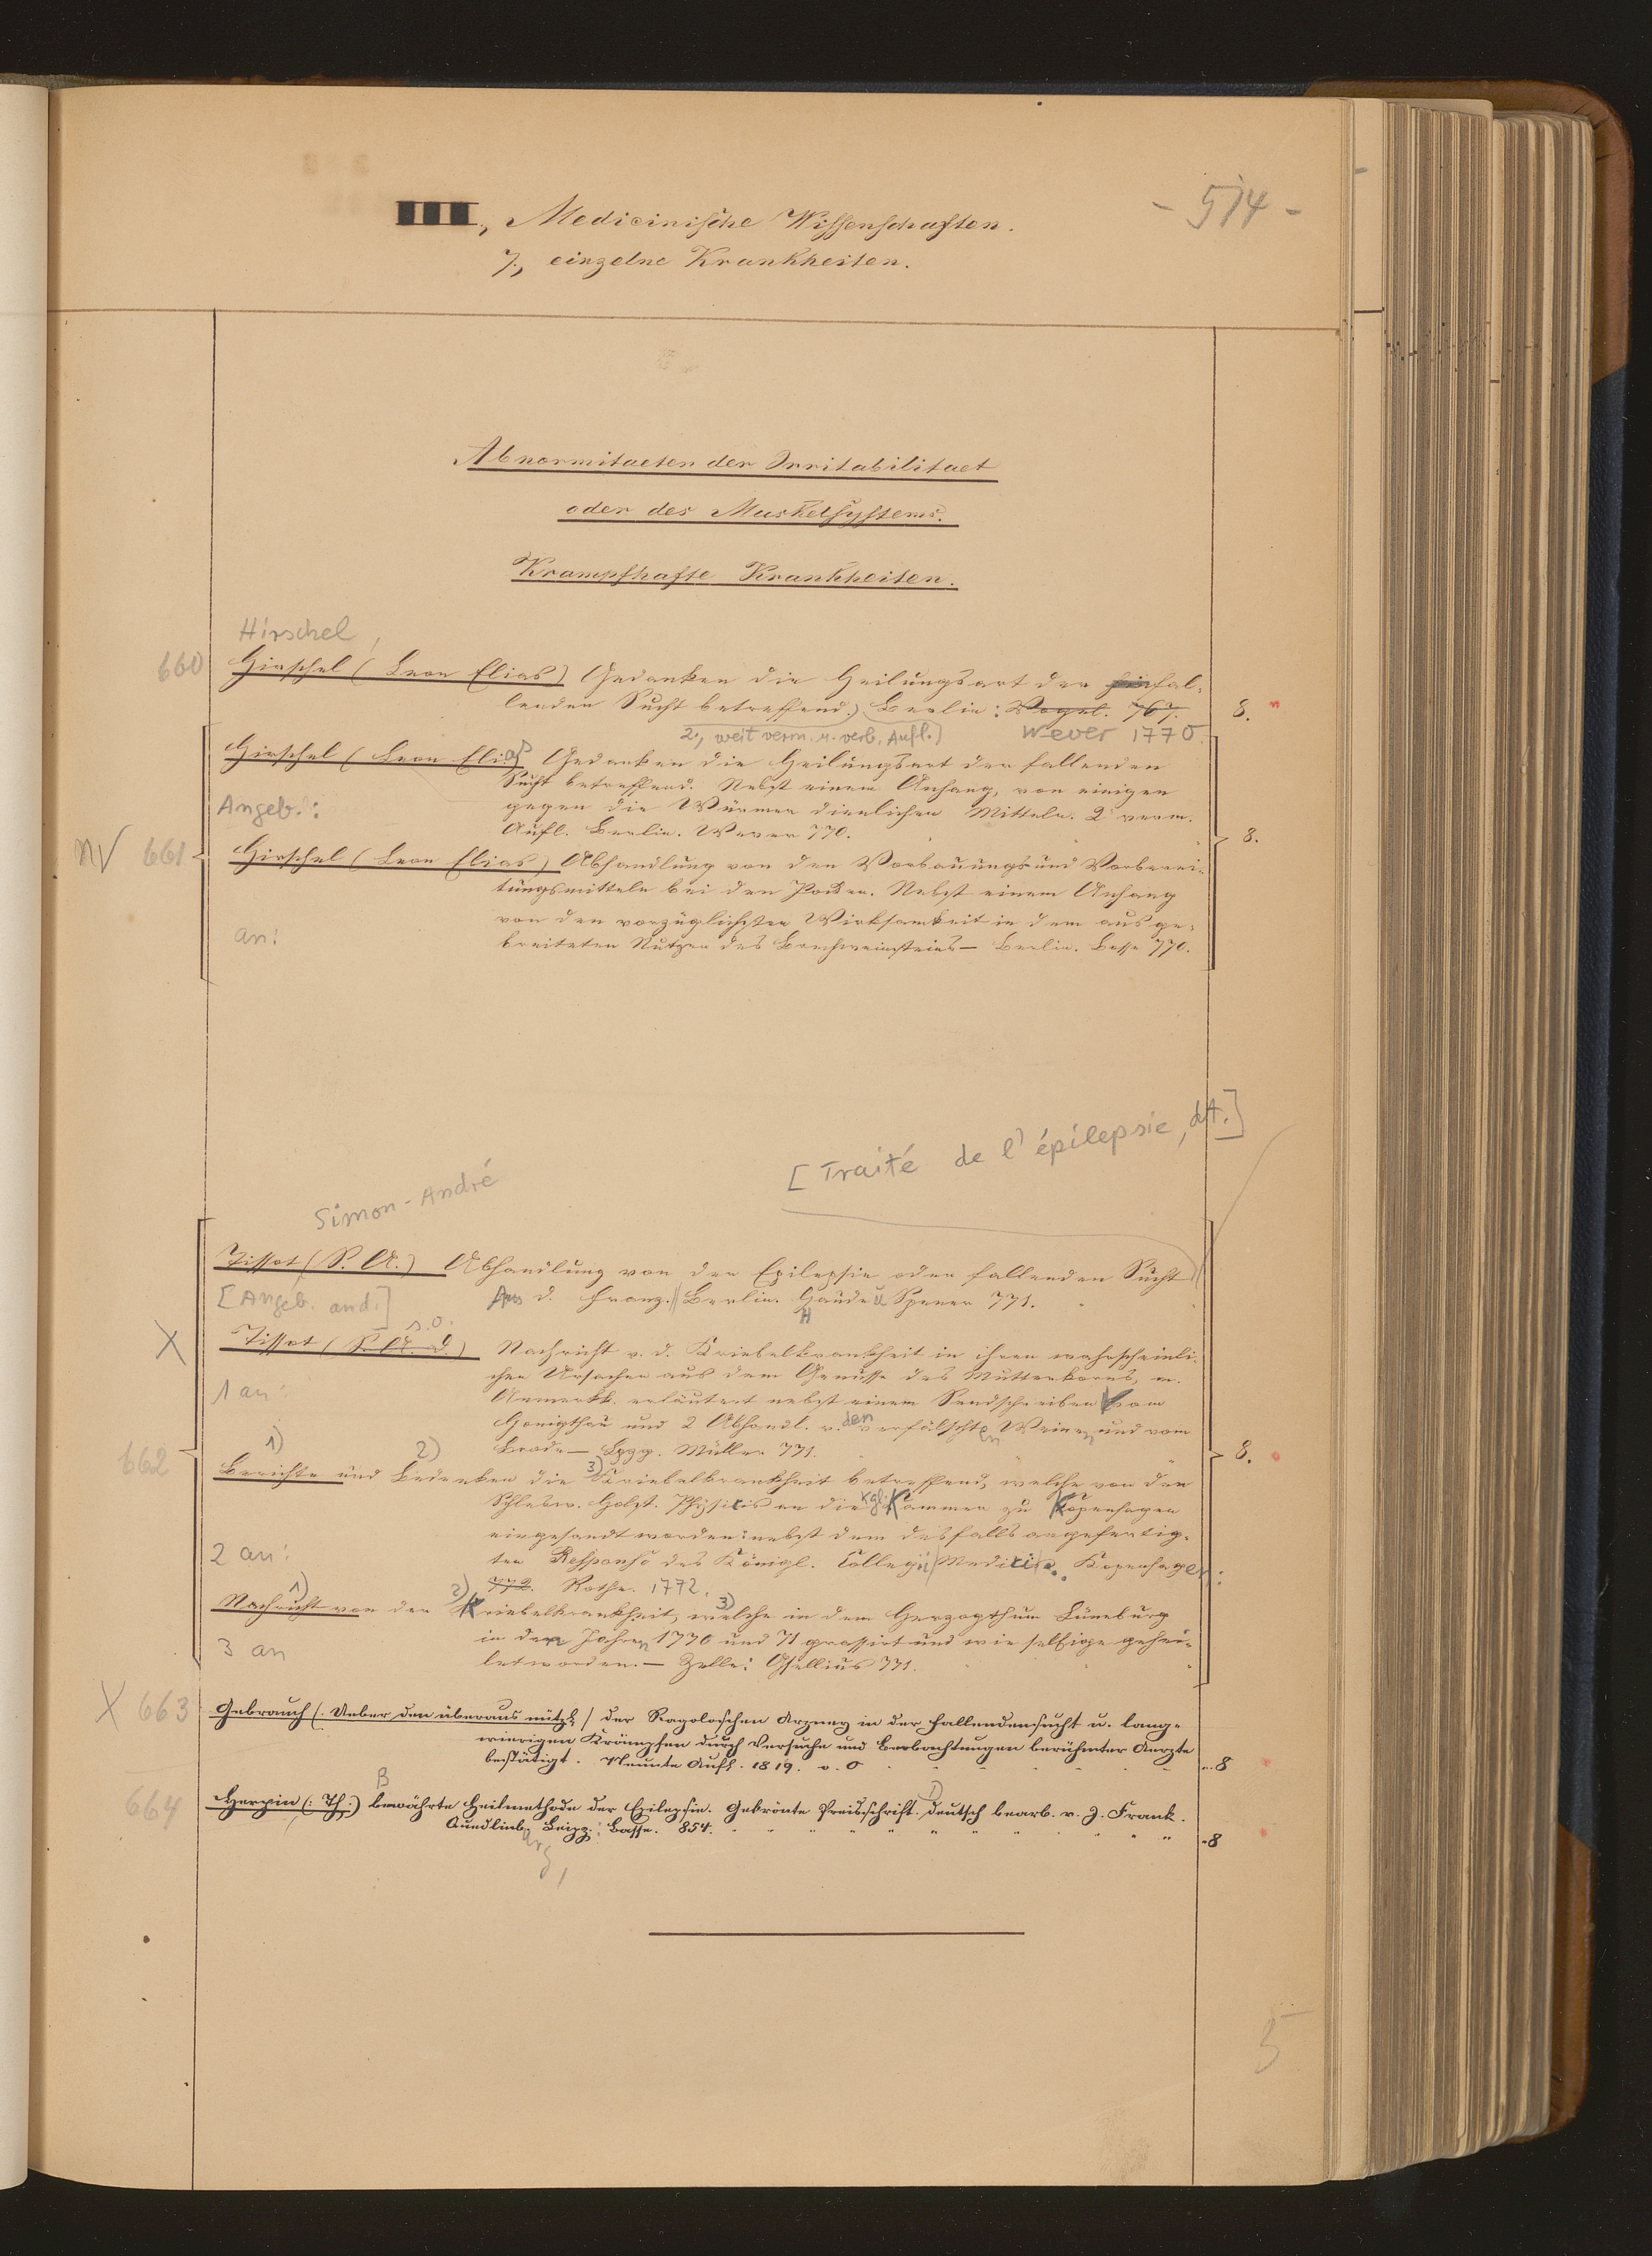 - 514 -
III., Medicinische Wissenschaften.
7., einzelne Krankheiten.
Abnormitaeten der Irritabilitaet
oder des Muskelsystems.
Krampfhafte Krankheiten.
Hirschel,
660 Hirschel (Leon Elias) Gedanken die Heilungsart der hinfal-
lenden Sucht betreffend.) Berlin: Vogel. 767. 8.
2., weit verm. u. verb. Aufl.) Wever 1770.
Hirschel (Leon Elias) Gedanken die Heilungsart der fallenden
Sucht betreffend. Nebst einem Anhang, von einigen
Angeb.: gegen die Würmer dienlichen Mitteln. 2 verm.
Aufl. Berlin. Wever 770. 8.
661 Hirschel (Leon Elias) Abhandlung von den Vorbauungs und Vorberei-
tungsmitteln bei den Pocken. Nebst einem Anhang
an: von der vorzüglichsten Wirksamkeit in dem ausge-
breiteten Nutzen des Brechweinsteins — Berlin. Besse 770.
[Traité de l'épilepsie, dt.]
Simon-André
Tissot (S. A.) Abhandlung von der Epilepsie oder fallenden Sucht
[Angeb. and.] Aus d. Franz. Berlin. Haude u Spener 771.
s.o.
X Tissot (S. A. D.) Nachricht v. d. Kriebelkrankheit in ihren wahrscheinli-
chen Ursachen aus dem Genusse des Mutterkorns, m.
1 an: Anmerkk. erläutert nebst einem Sendschreiben vom
Honigthau und 2 Abhandl. v. den verfälschten Weinen und vom
Brode — Lpzg. Müller 771.
662 1) Berichte und 2) Bedenken die 3) Kriebelkrankheit betreffend, welche von den 8.
Schlesw. Holst. Physicis an die kgl. Kammer zu Kopenhagen
eingesandt worden: nebst dem desfalls angefertig-
2 an: ten Responso des Königl. Collegii Medici. Kopenhagen:
772. Rothe. 1772.
1) Nachricht von der 2) Kriebelkrankheit, 3) welche in dem Herzogthum Lüneburg
in den Jahren 1770 und 71 grassirt und wie selbige gehei-
3 an let worden. — Zelle: Gsellius 771.
X 663 Gebrauch (: Ueber den überaus nützl: / der Ragoloschen Arzney in der fallendensucht u. lang-
wierigen Krämpfen durch Versuche und Beobachtungen berühmter Aerzte
bestätigt. Neunte Aufl. 1819. o. O 8
B
664 Herpin (: Th:) bewährte Heilmethode der Epilepsie. Gekrönte Preisschrift. deutsch bearb. v. J. Frank.
Quedlinb. Leipz.: Basse. 854. 8
5